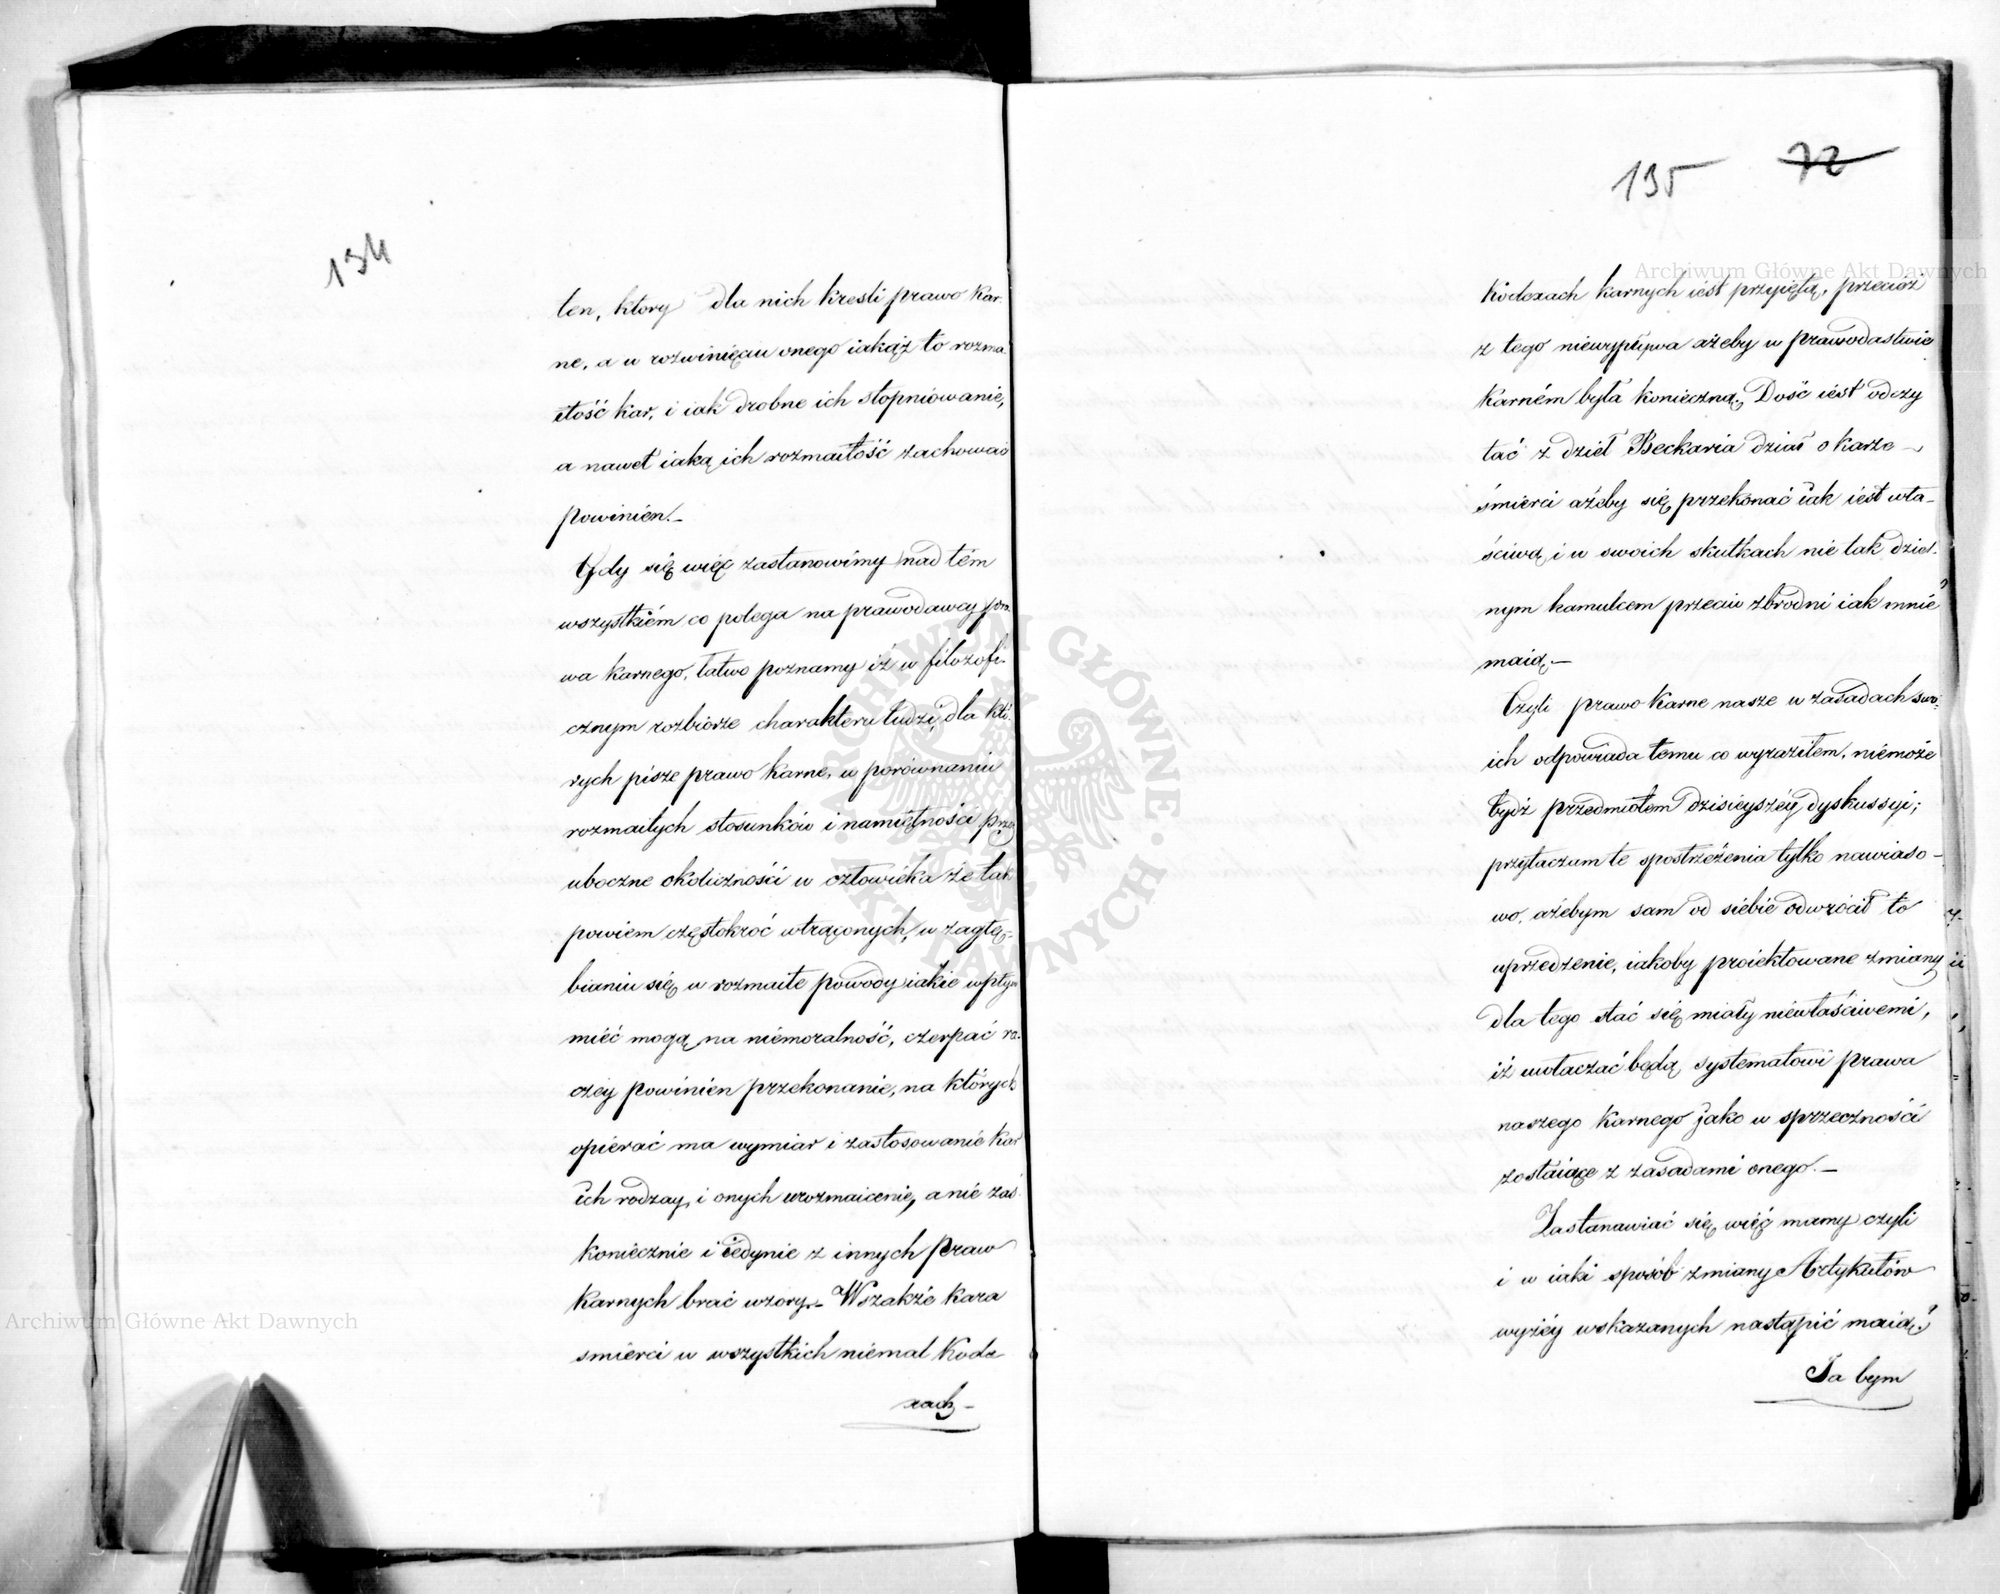 134
ten, ktory dla nich kresli prawo kar-
ne, a w rozwinięciu onego iakąż to rozma
itość kar, i iak drobne ich stopniowanie,
a nawet iaką ich rozmaitość zachować
powinien.-
Gdy się więc zastanowimy nad tém
wszystkiém co polega na prawodawcy pra-
wa karnego, łatwo poznamy iż w filozofi-
cznym rozbiorze charakteru ludzi, dla któ-
rych pisze prawo karne, w porównaniu
rozmaitych stosunków i namiętności przez
uboczne okoliczności w człowieka że tak
powiem częstokroć wtrąconych, w zagłę-
bianiu się w rozmaite powody iakie wpływ
mieć mogą na niemoralność, czerpać ra-
czey powinien przekonanie, na których
opierać ma wymiar i zastosowanie kar
ich rodzay, i onych urozmaicenie, a nie zaś
koniecznie i iedynie z innych praw
karnych brać wzory.- Wszakże kara
smierci w wszystkich niemal kode
xach-
135 72
Kodexach karnych iest przyiętą, przecież
z tego niewypływa ażeby w prawodastwie
karném była konieczną. Dość iest odczy
tać z dzieł Beckaria dział o karze -
śmierci ażeby się przekonać iak iest wła-
ściwą i w swoich skutkach nie tak dziel-
nym hamulcem przeciw zbrodni iak mnie
maią.-
Czyli prawo karne nasze w zasadach swo-
ich odpowiada temu co wyraziłem, niemoże
bydź przedmiotem dzisieyszéy dyskussyi;
przytaczam te spostrzeżenia tylko nawiaso-
wo, ażebym sam od siebie odwrócił to
uprzedzenie, iakoby proiektowane zmiany
dla tego stać się miały niewłaściwemi,
iż uwłaczać będą systematowi prawa
naszego karnego jako w sprzeczności
zostaiące z zasadami onego.-
Zastanawiać się więc mamy czyli
i w iaki sposób zmiany Artykułów
wyżéy wskazanych nastąpić maią?
Ja bym
Archiwum Główne Akt Dawnych
Archiwum Główne Akt Dawnych
ARCHIWUM GŁÓWNE · AKT DAWNYCH ·